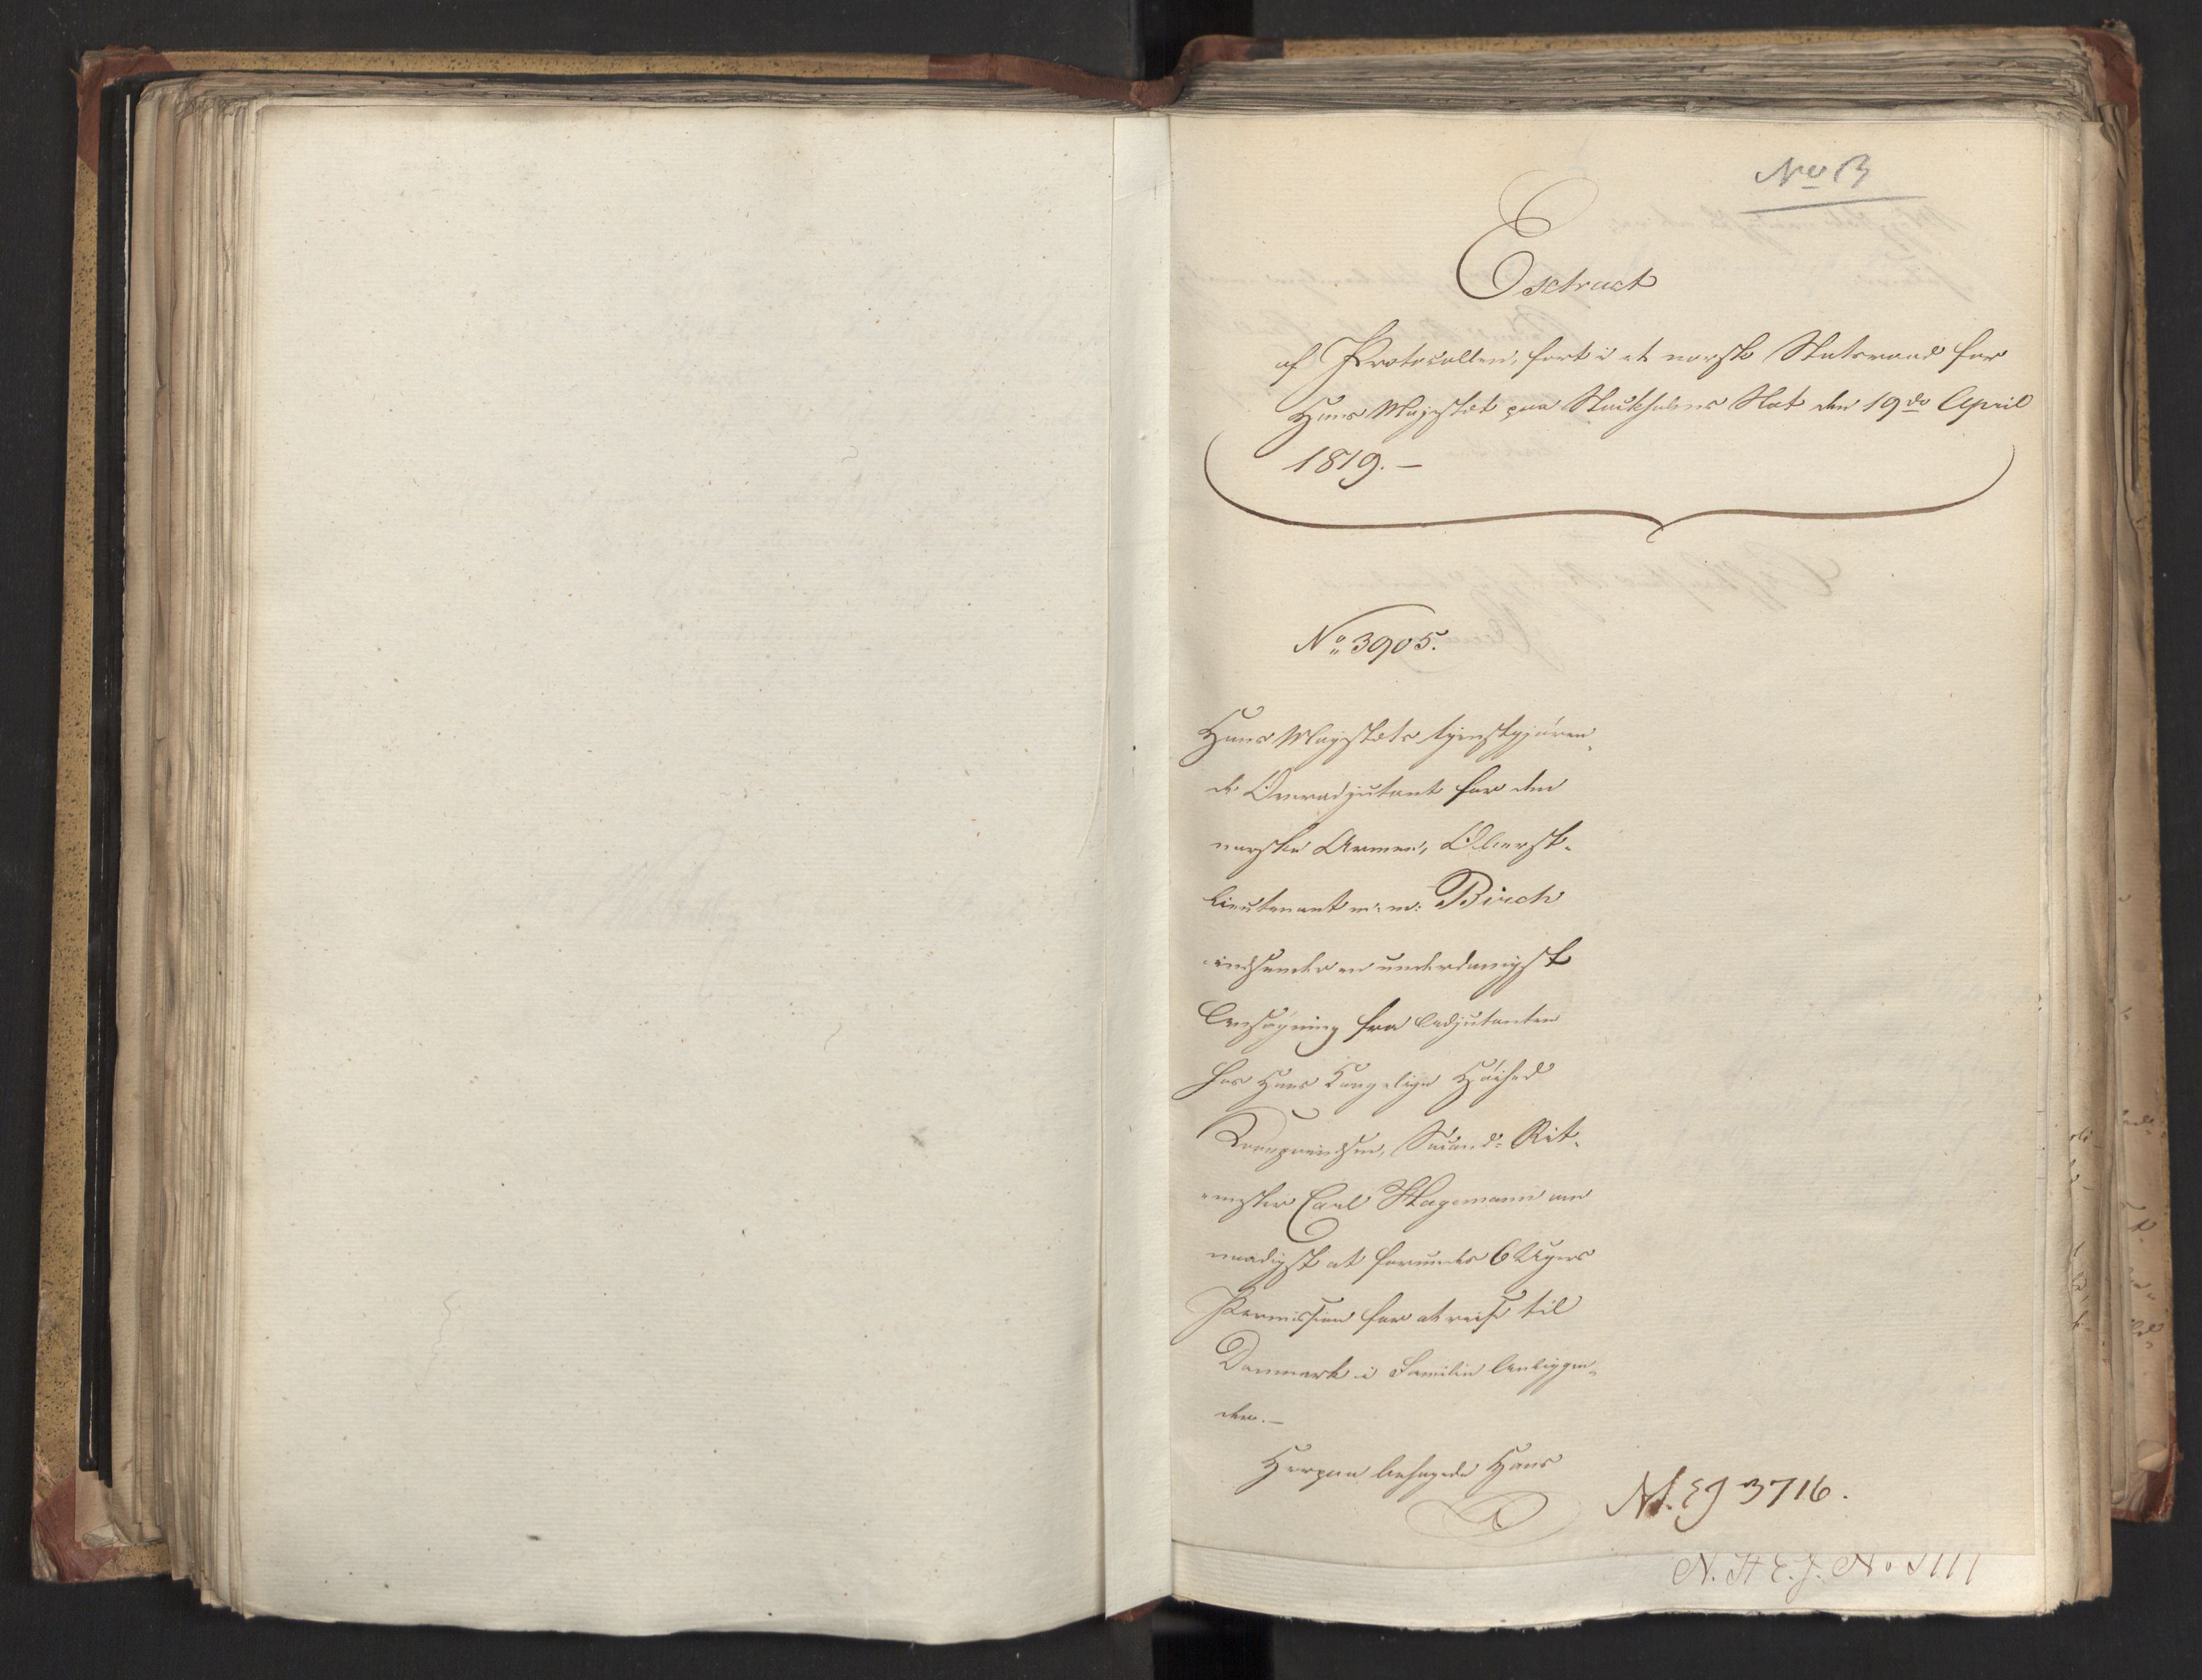 No 13
Extract
af Protocollen, ført i et norsk Statsraad for
Hans Majestæt paa Stockholms Slot den 19de April
1819. —
No 3905.
Hans Majestæts tjenstgjøren-
de Overadjutant for den
norske Armee, Oberst-
lieutenant m: m: Birch
indsender en underdanigst
Ansøgning fra Adjutanten
hos Hans Kongelige Høihed
Kronprindsen, Second- Rit-
mester Carl Wagemann om
naadigst at forundes 6 Ugers
Permission for at reise til
Danmark i Familie Anliggen-
der. —
Herpaa behagede Hans
3716.